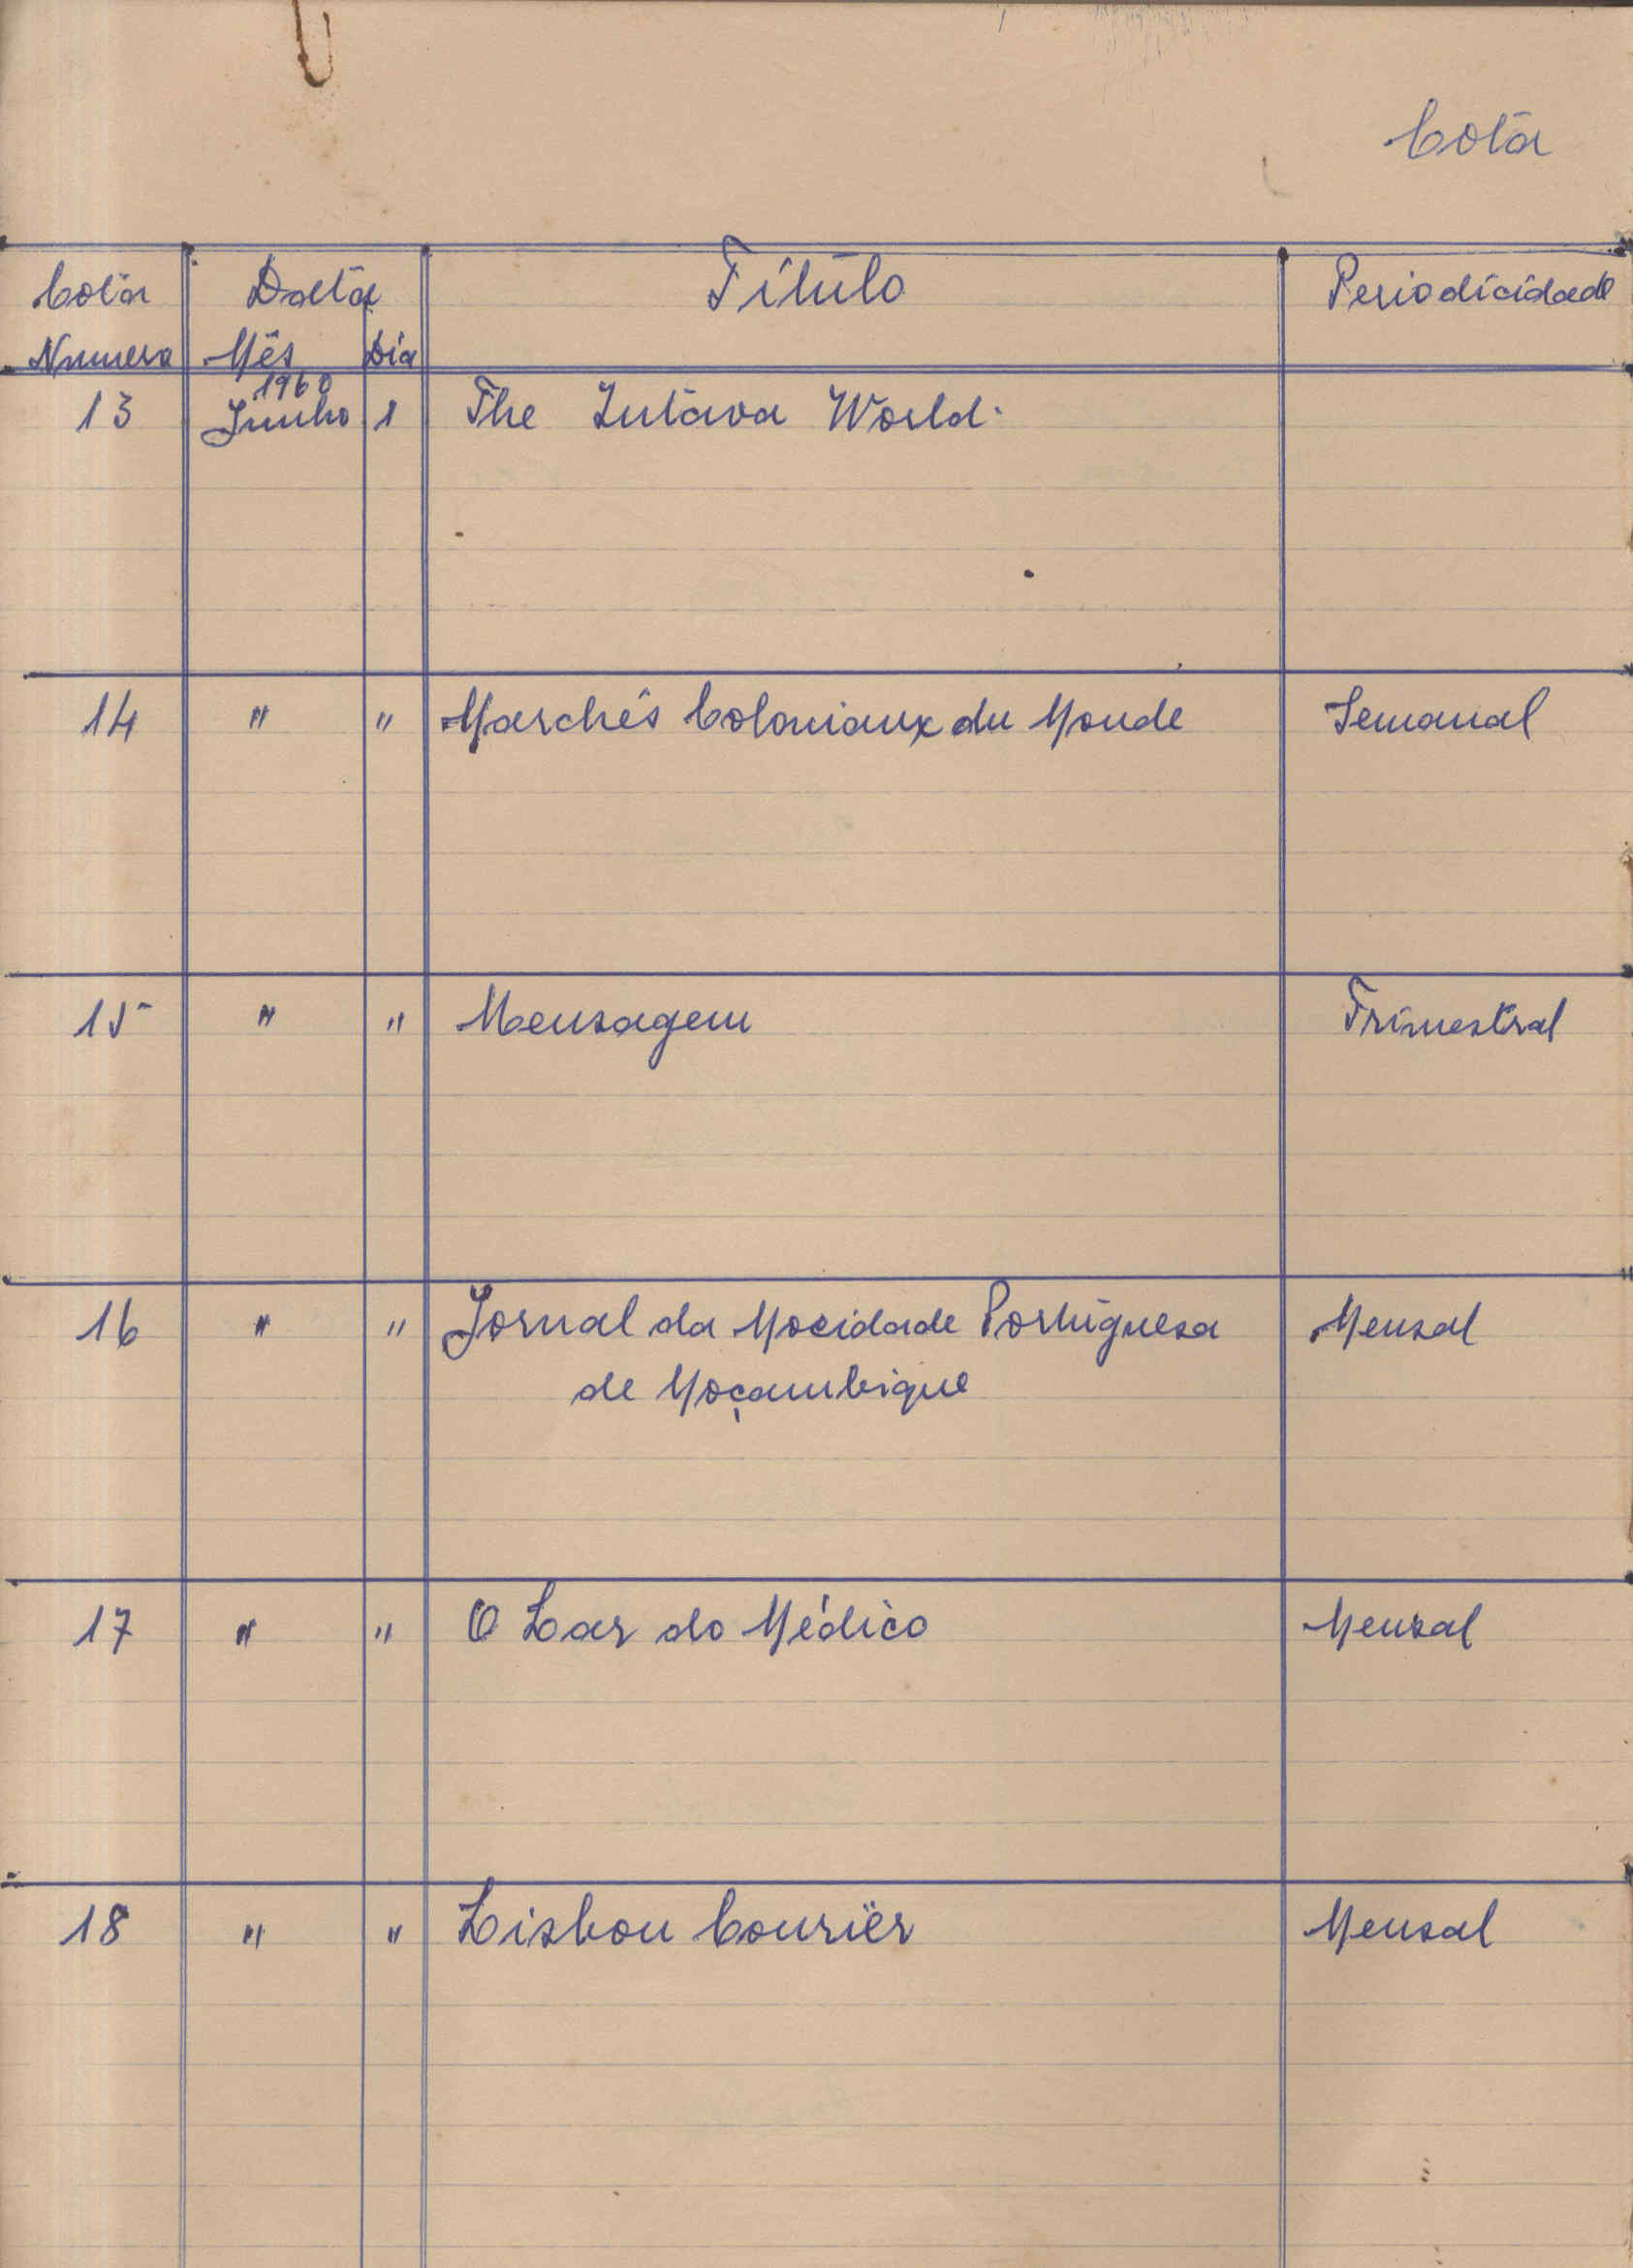 Cota
Cota Data Título Periodicidade
Numero Mês Dia
1960
13 Junho 1 The Intava World.
14 " " Marchés Coloniaux du Monde Semanal
15 " " Mensagem Trimestral
16 " " Jornal da Mocidade Portuguesa Mensal
de Moçambique
17 " " O Lar do Médico Mensal
18 " " Lisbon Courier Mensal